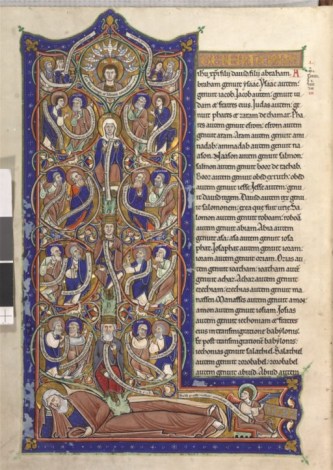 ihu xpi filii dauid filii abraham. A
braham genuit ysaac. Ysaac autem:
genuit iacob. Iacob autem: genuit iu
dam et fratres eius. Iudas autem: ge
nuit phares et zaram de thamar. Pha
res autem genuit esrom: esrom autem
genuit aram. Aram autem genuit ami
nadab: aminadab autem genuit na
ason. Naason autem genuit salmon:
salmon autem genuit booz de rachab.
Booz autem genuit obeth ex ruth. Obeth
autem genuit iesse. Iesse autem: genu
it dauid regem. Dauid autem rex genu
it salomonem: ex ea que fuit urie. Sa
lomon autem genuit roboam: roboā
autem genuit abiam. Abia autem
genuit asa: asa autem genuit iosa
phat. Iosaphat autem genuit ioram:
ioram autem genuit oziam. Ozias au
tem genuit ioatham: ioatham autem
genuit achaz. Achaz autem genuit
ezechiam: ezechias autem genuit ma
nassen. Manasses autem genuit amon:
amon autem genuit iosiam. Iosias
autem genuit iechoniam et fratres
eius in transmigratione babylonis.
Et post transmigrationem babylonis:
iechonias genuit salathiel. Salathiel
autem genuit zorobabel: zorobabel
autem genuit abiud. Abiud autem